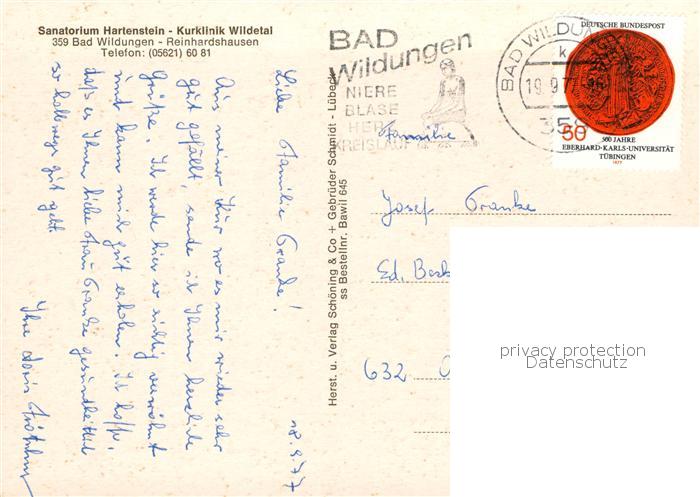 Sanatorium Hartenstein - Kurklinik Wildetal
359 Bad Wildungen - Reinhardshausen
Telefon: (05621) 60 81
18.9.77
Liebe Familie Franke!
Aus meiner Kur wo es mir wieder sehr
gut gefällt, sende ich Ihnen herzliche
Grüße. Ich werde hier so richtig verwöhnt
und kann mich gut erholen. Ich hoffe,
daß es Ihnen liebe Frau Franke gesundheitlich
so halbwegs gut geht.
Ihre Doris
Herst. u. Verlag Schöning & Co + Gebrüder Schmidt - Lübeck
ss Bestellnr. Bawil 645
BAD
Wildungen
NIERE
BLASE
HERZ
KREISLAUF
BAD WILDUN
k
19.9.77
359
DEUTSCHE BUNDESPOST
50
500 JAHRE
EBERHARD-KARLS-UNIVERSITÄT
TÜBINGEN
1977
Familie
Josef Franke
Ed. Berk
632
privacy protection
Datenschutz